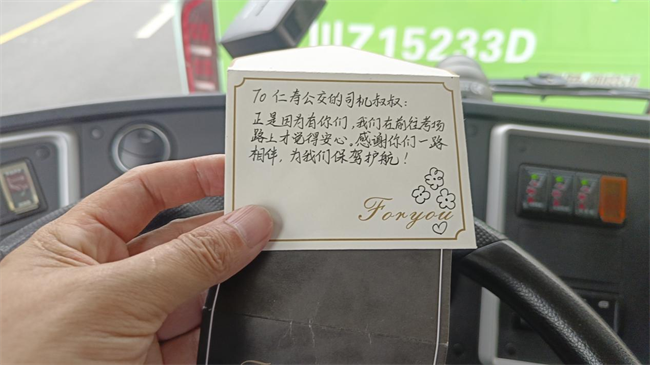 川Z15233D
To 仁寿公交的司机叔叔:
正是因为有你们,我们在前往考场
路上才觉得安心。感谢你们一路
相伴,为我们保驾护航!
Foryou